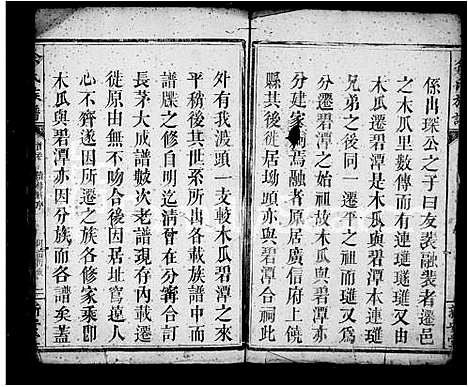 係冉琛公之子曰友裴融裴者遷邑
之木瓜里數傳而有連璡璡又遷
碧潭是木瓜與碧潭本連璡又爲
兄弟之後同一遷
分遷碧潭之始祖故木瓜與碧潭
分建家祠焉融者原居廣信府上僥
縣其後徙居坳頭亦與碧潭合祠此
外有我渡頭一支較木瓜碧潭之來
平稍後其世系所出各載族譜
譜牒之修前淸曾在分甯合訂
長茅大成譜數次老譜現存內載遷
徙原由無不吻合後因居址寫遠人
心不齊遂因所遷之族各修家乘即
木瓜與碧潭亦因分族而各譜矣蓋
氏族譜